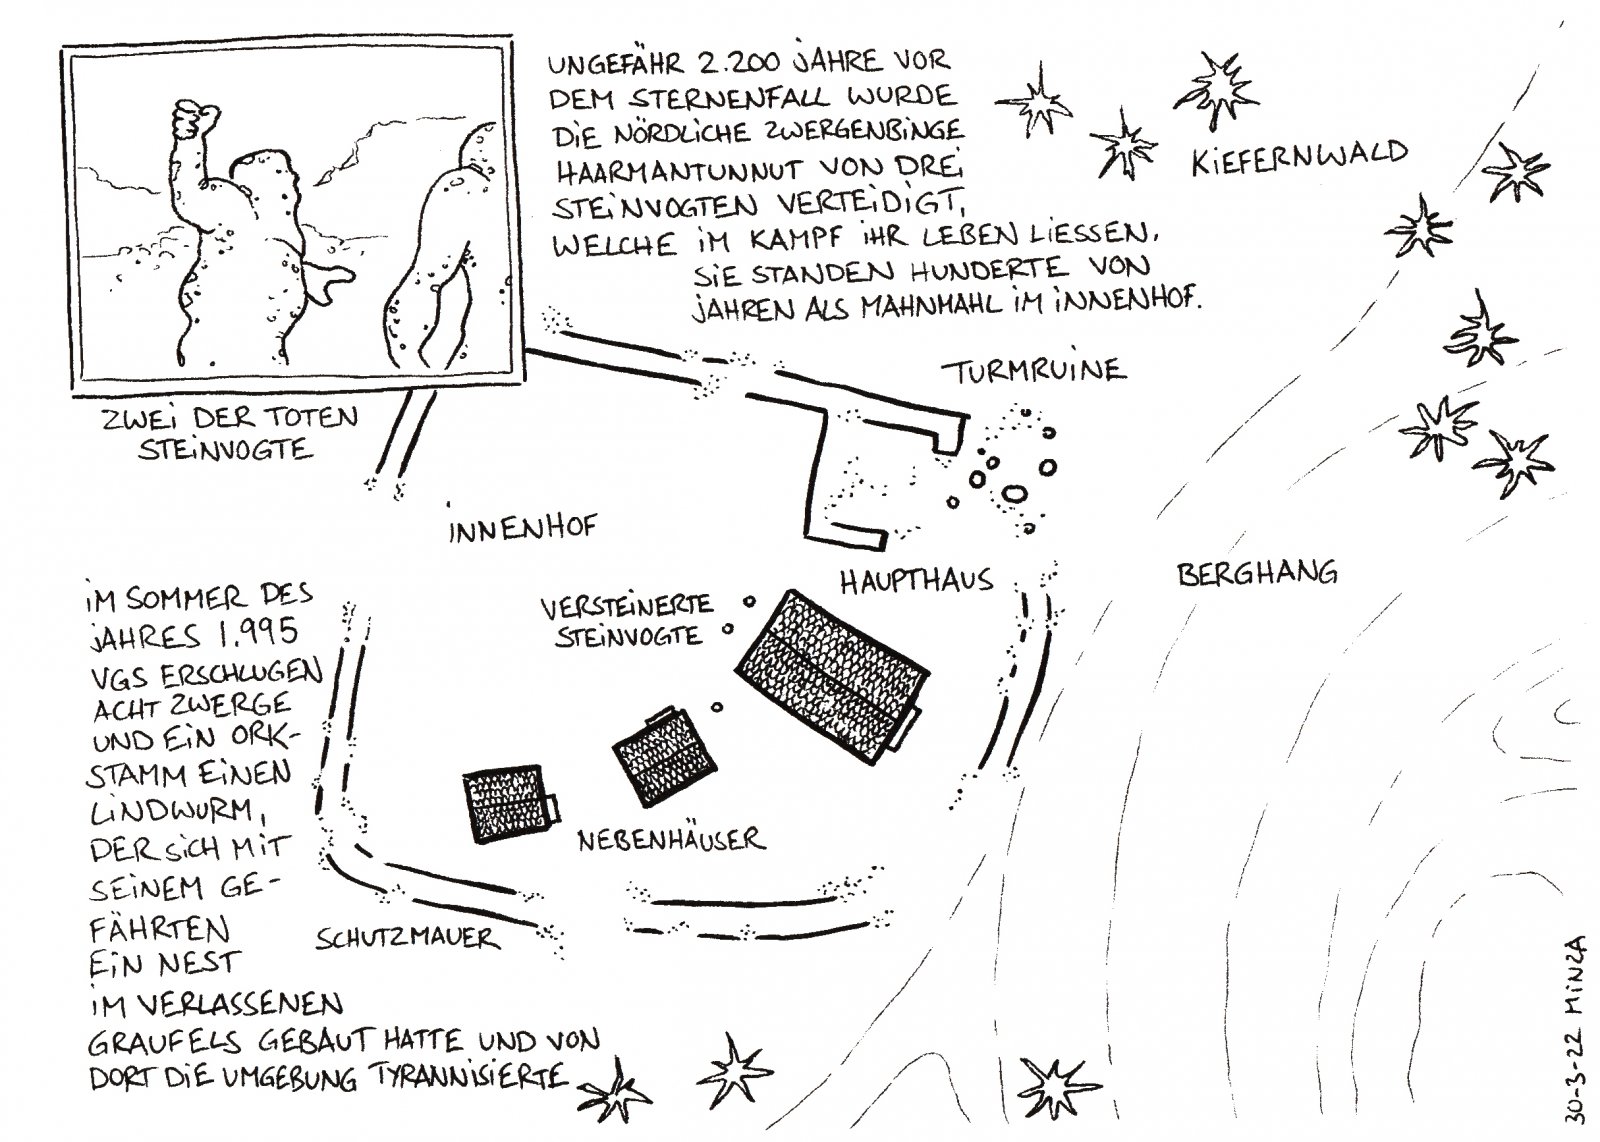 UNGEFÄHR 2.200 JAHRE VOR
DEM STERNENFALL WURDE
DIE NÖRDLICHE ZWERGENBINGE
HAARMANTUNNUT VON DREI
STEINVOGTEN VERTEIDIGT,
WELCHE IM KAMPF IHR LEBEN LIESSEN.
SIE STANDEN HUNDERTE VON
JAHREN ALS MAHNMAHL IM INNENHOF.
KIEFERNWALD
TURMRUINE
ZWEI DER TOTEN
STEINVOGTE
INNENHOF
BERGHANG
HAUPTHAUS
VERSTEINERTE
STEINVOGTE
IM SOMMER DES
JAHRES 1.995
VGS ERSCHLUGEN
ACHT ZWERGE
UND EIN ORK-
STAMM EINEN
LINDWURM,
DER SICH MIT
SEINEM GE-
FÄHRTEN
EIN NEST
IM VERLASSENEN
GRAUFELS GEBAUT HATTE UND VON
DORT DIE UMGEBUNG TYRANNISIERTE
NEBENHÄUSER
SCHUTZMAUER
30-3-22 MINZA